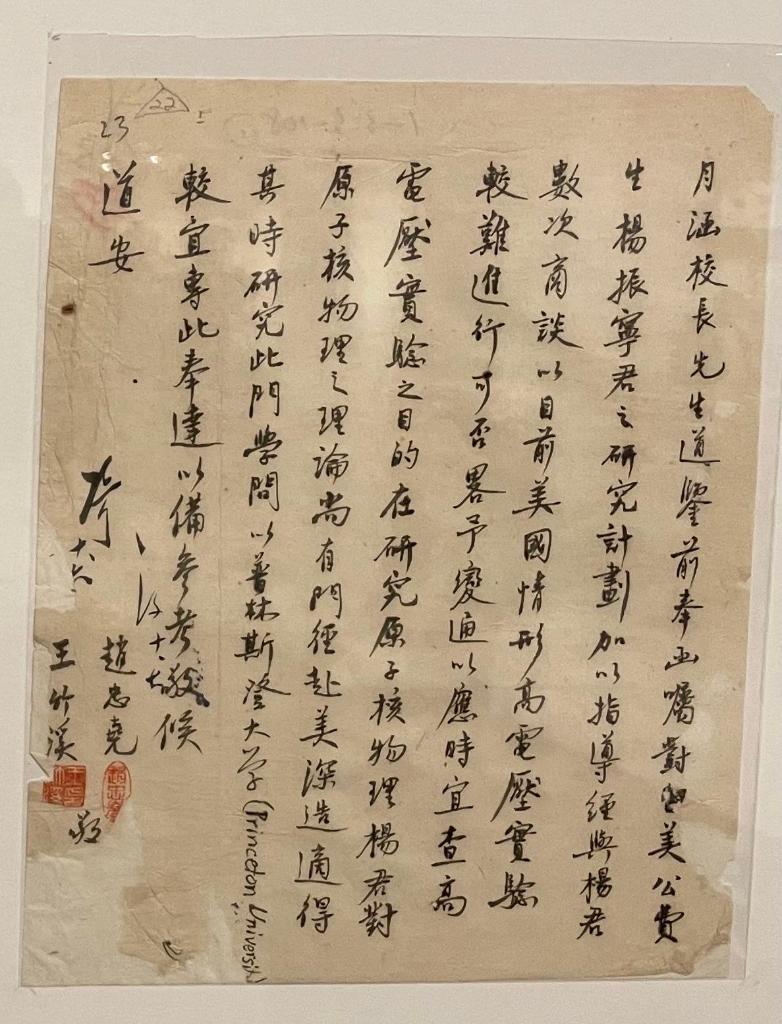 月涵校長先生道鑒前奉函囑對留美公費
生楊振寧君之研究計劃加以指導經與楊君
數次商談以目前美國情形高電壓實驗
較難進行可否畧予變通以應時宜查高
電壓實驗之目的在研究原子核物理楊君對
原子核物理之理論尚有門徑赴美深造適得
其時研究此門學問以普林斯登大学(Princeton University)
較宜專此奉達以備參考敬候
道安
趙忠堯
王竹溪
敬
十、六
十、七
22
23